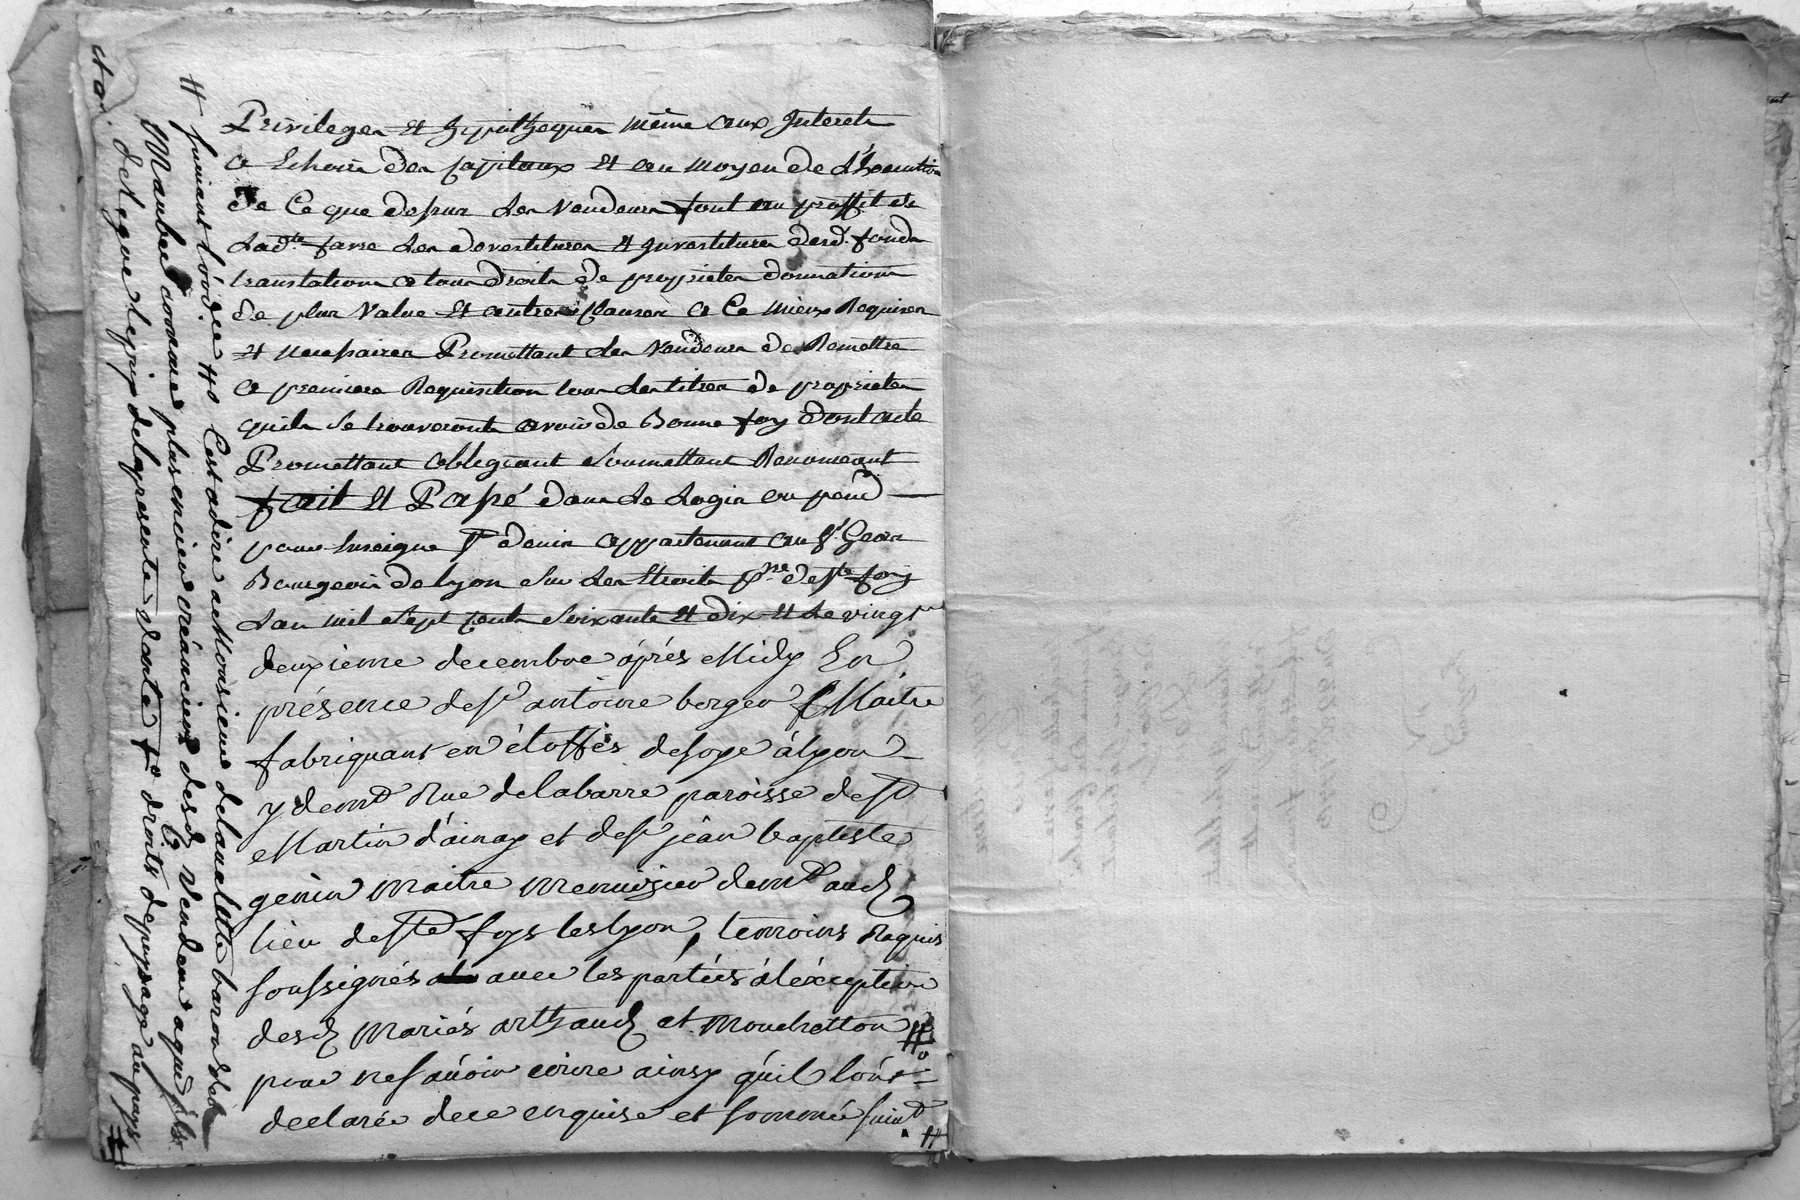 Privileges et hypotheques même aux Interets
a Echoir des Capitaux et au moyen de L'Execution
de Ce que dessus Les Vendeurs font au proffit de
Lad.te favre Les devestitures et Investitures desd. fonds
translation a tous droits de proprietes donnation
de plus Value et autres Clauses a Ce mieux Requises
et necessaires Promettant Les Vendeurs de Remettre
a premiere Requisition tous Les titres de proprietes
quils Se trouveronts avoir de Bonne foy dont acte
Promettant obligeant Soumettant Renonceant
fait et Passé dans Le Logis ou pend
pour Enseigne St denis appartenant au Sr.
Bourgeois de Lyon Sur Les Etroits p.sse de Ste foy
Lan mil Sept Cents Soixante et dix et Le vingt
deuxieme decembre áprés Midy En
présence de Sr antoine berger Maitre
fabriquant en étoffes de soye á Lyon
y demt Rue de la barre paroisse de St
Martin d'ainay et de Sr jean baptiste
genin maitre menuisier demt aud
lieu de Ste foys les lyon, temoins Requis
soussignés avec les párties á l'éxception
desd Mariés arthaud et Mouchetton #
pour ne sávoir ecrire ainsy qu'il l'ont
declarée de ce enquise et sommée suivt #
# suivant l'ord.ce # Cest a dire a Monsieur delavalette baron de
Maubec comme plus encien créancier desd Vendeurs
et de Regive le prix de la presente Vente # droits de peysage au pays #